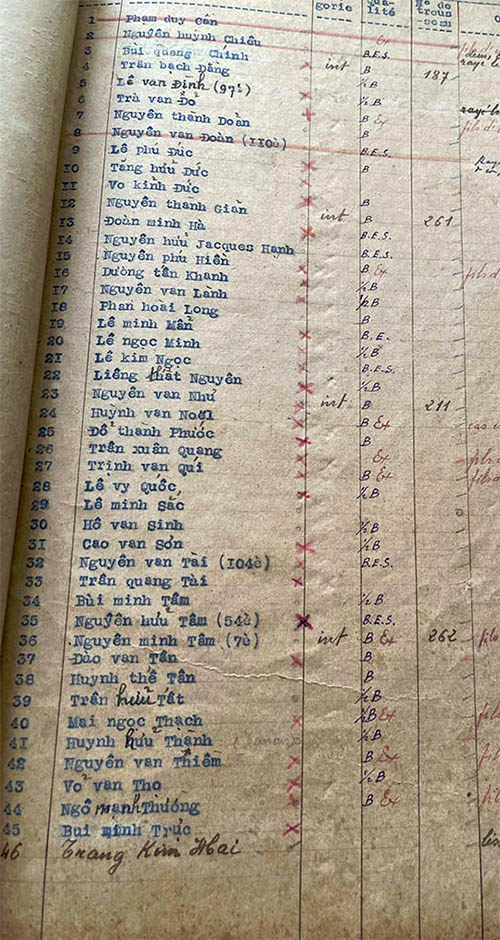 gorie Qua- lité No de trous- seau
1 Pham duy Cân
2 Nguyên huỳnh Chiêu Ex
3 Bùi quang Chính B.E.S.
4 Trân bạch Đăng int B 187
5 Lê văn Đình (97è) ½B
6 Trà van Đỏ ½B
7 Nguyên thành Doàn B Ex
8 Nguyên van Doàn (110è) B
9 Lê phú Đúc B.E.S.
10 Tăng hữu Đúc B
11 Vo kinh Đúc
12 Nguyên thanh Gian B
13 Đoàn minh Hà int B 261
14 Nguyên hữu Jacques Hạnh B.E.S.
15 Nguyên phú Hiên B.E.S.
16 Dương tân Khanh B Ex
17 Nguyên van Lành ½B
18 Phan hoài Long ½B
19 Lê minh Mẫn B
20 Lê ngọc Minh B.E.
21 Lê kim Ngọc ½B
22 Liêng thất Nguyên B.E.S.
23 Nguyên van Như ½B
24 Huỳnh van Noël int B 211
25 Đổ thanh Phước B Ex
26 Trân xuân Quang B
27 Trịnh van Qui Ex
28 Lê vy Quốc B Ex
29 Lê minh Sắc ½B
30 Hồ van Sinh ½B
31 Cao van Sơn ½B
32 Nguyên van Tài (104è) B.E.S.
33 Trân quang Tài
34 Bùi minh Tâm ½B
35 Nguyên hưu Tâm (54è) B.E.S.
36 Nguyên minh Tâm (7è) int B Ex 262
37 Đào van Tân B
38 Huynh thế Tân B
39 Trân hữu Tất ½B
40 Mai ngọc Thạch ½B Ex
41 Huynh hữu Thành ½B
42 Nguyên van Thiêm B Ex
43 Vo van Tho ½B
44 Ngô mạnh Thường B Ex
45 Bui minh Trực
46 Trang Kim Hai